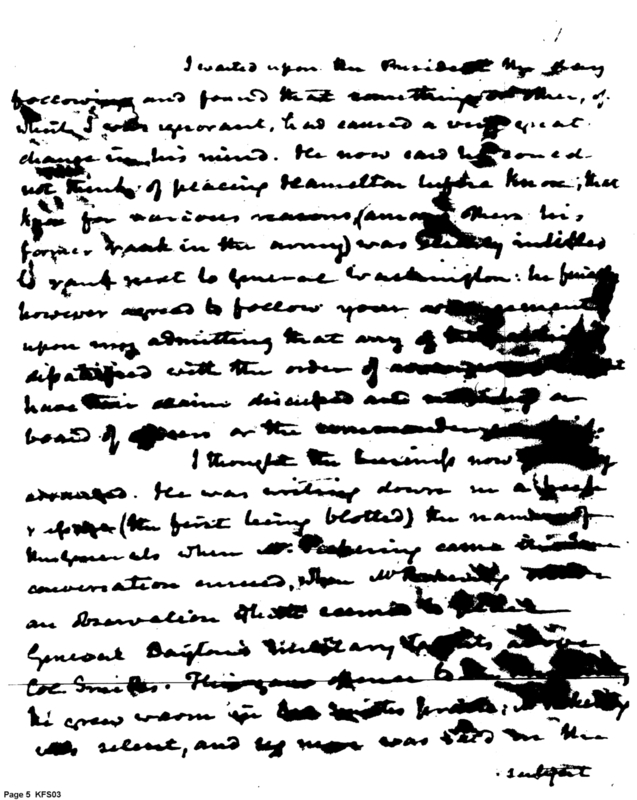 I waited upon the President the day
following and found that something or other, of
which I was ignorant, had caused a very great
change in his mind. He now said he could
not think of placing Hamilton before Knox; that
Knox for various reasons (among others his
former rank in the army) was clearly intitled
to rank next to General Washington: he finally
however agreed to follow your arrangement
upon my admitting that any of
dissatisfied with the order of
have their claim discussed and by a
board of officers or the commander
I thought the business now
arranged. He was writing down on a
(the first being blotted) the names of
the Generals when Mr. Pickering came
conversation ensued, when Mr Pickering
an observation that seemed to
General Dayton's military talents above
Col. Smiths. This gave offence to
he grew warm in
was silent, and no more was said on the
subject
Page 5 KFS03